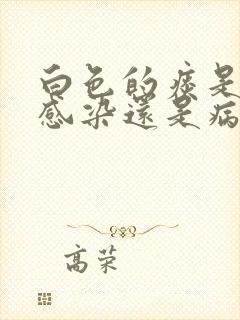 白色的痰是
感染還是病
高荣